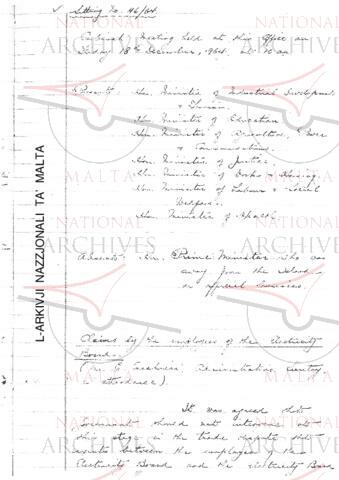 Sitting No. 46/64.
Cabinet Meeting held at this Office on
Friday 18th December, 1964 at 10 am
Present: Hon. Minister of Industrial Development
& Tourism.
Hon. Minister of Education
Hon. Minister of Agriculture, Power
& Communications.
Hon. Minister of Justice.
Hon. Minister of Works & Housing.
Hon. Minister of Labour & Social
Welfare.
Hon. Minister of Health.
Absent: Hon. Prime Minister who was
away from the Island
on official business.
Claims by the employees of the Electricity
Board.
in attendance).
It was agreed that
Government should not intervene at
this stage in the trade dispute that
exists between the employees of the
Electricity Board and the Electricity Board
L-ARKIVJI NAZZJONALI TA' MALTA
NATIONAL
ARCHIVES
MALTA
NATIONAL
ARCHIVES
MALTA
NATIONAL
ARCHIVES
MALTA
NATIONAL
ARCHIVES